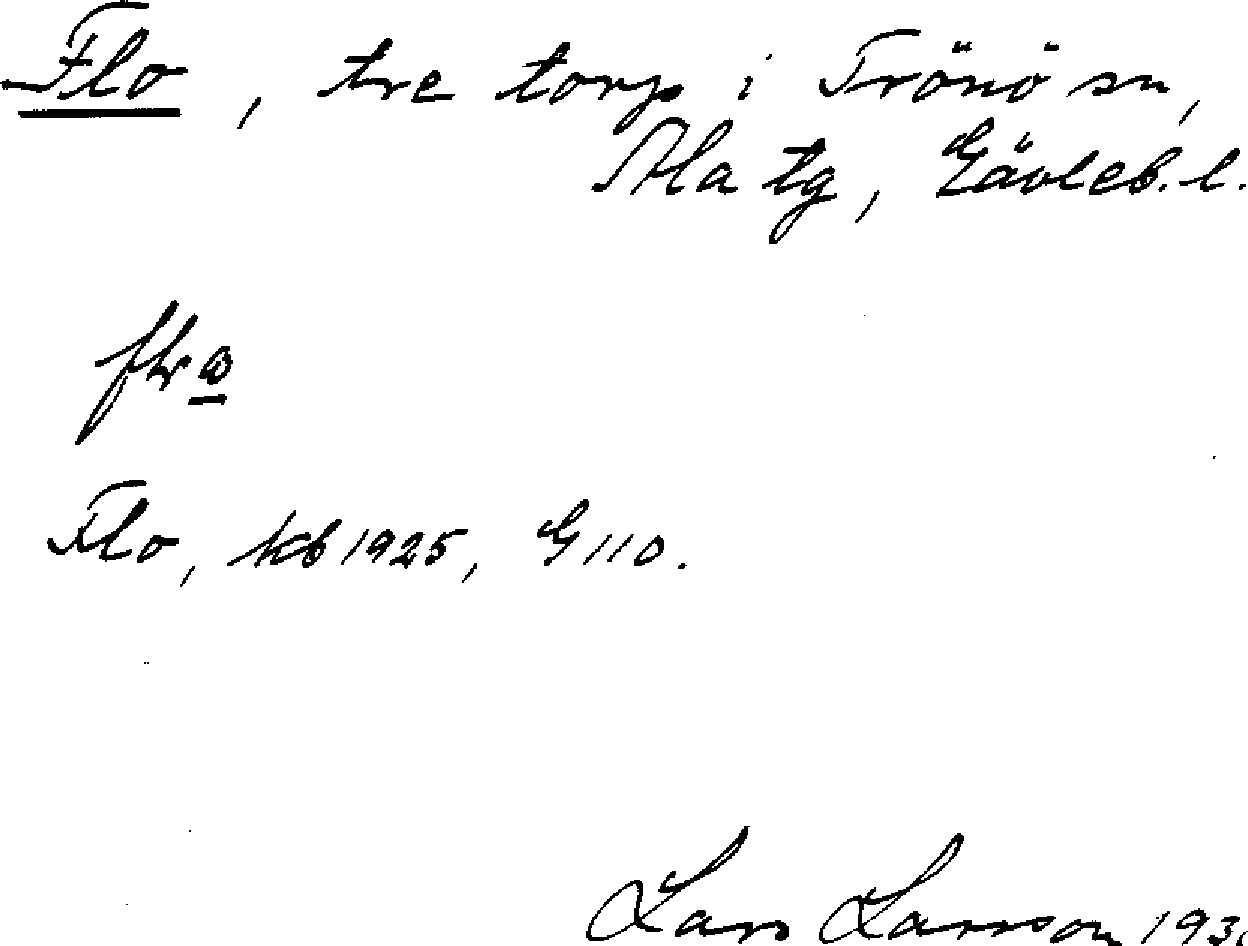 Flo, tre torp i Trönö sn,
Ala tg, Gävleb. l.
Flo, kb 1925, G 110.
Lars Larsson 193